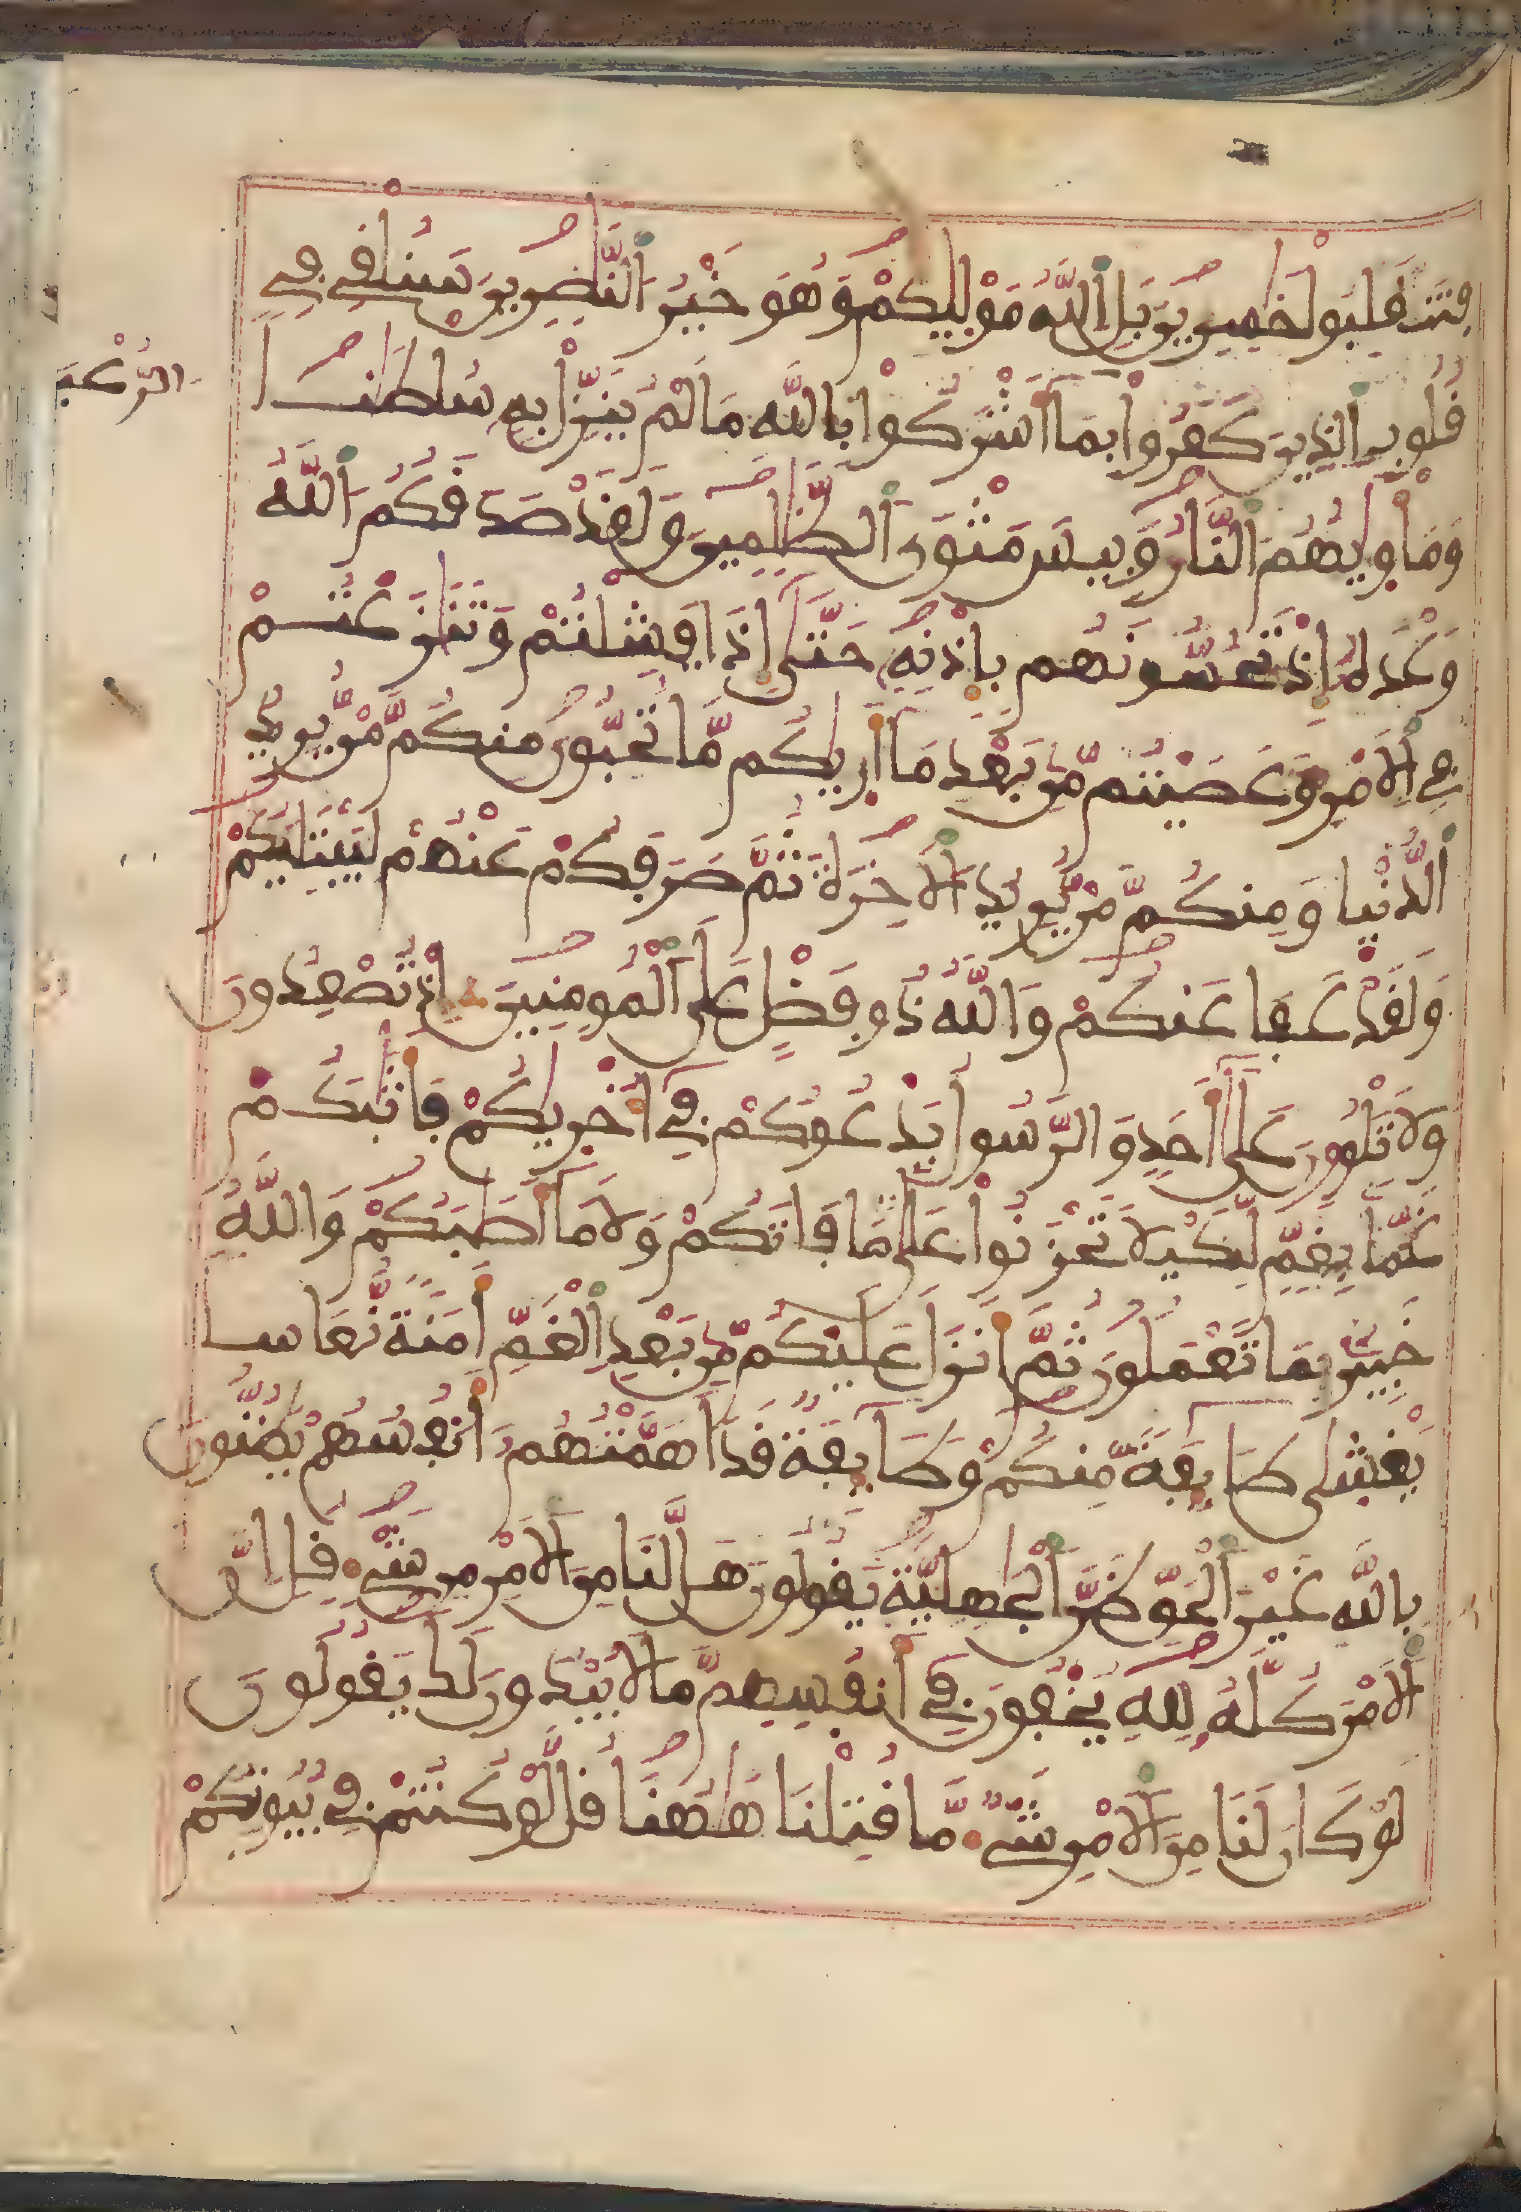 فتنقلبوا خسرين بل الله موليكم وهو خير النصرين سنلقي في
الرعب
قلوب الذين كفروا بما أشركوا بالله ما لم ينزل به سلطنا
وماويهم النار وبيس مثوى الظلمين ولقد صدقكم الله
وعده إذ تحسونهم بإذنه حتى إذا فشلتم وتنزعتم
في الامر وعصيتم من بعد ما أريكم ما تحبون منكم من يريد
الدنيا ومنكم من يريد الاخرة ثم صرفكم عنهم ليبتليكم
ولقد عفا عنكم والله ذو فضل على المومنين إذ تصعدون
ولا تلون على أحد والرسول يدعوكم في أخريكم فأثبكم
غما بغم لكيلا تحزنوا على ما فاتكم ولا ما أصبكم والله
خبير بما تعملون ثم أنزل عليكم من بعد الغم أمنة نعاسا
يغشى طايفة منكم وطايفة قد أهمتهم أنفسهم يظنون
بالله غير الحق ظن الجهلية يقولون هل لنا من الامر من شيء قل إن
الامر كله لله يخفون في أنفسهم ما لا يبدون لك يقولون
لو كان لنا من الامر شيء ما قتلنا ههنا قل لو كنتم في بيوتكم